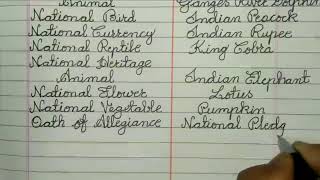 Animal Ganges River Dolphin
National Bird Indian Peacock
National Currency Indian Rupee
National Reptile King Cobra
National Heritage
Animal Indian Elephant
National Flower Lotus
National Vegetable Pumpkin
Oath of Allegiance National Pledg